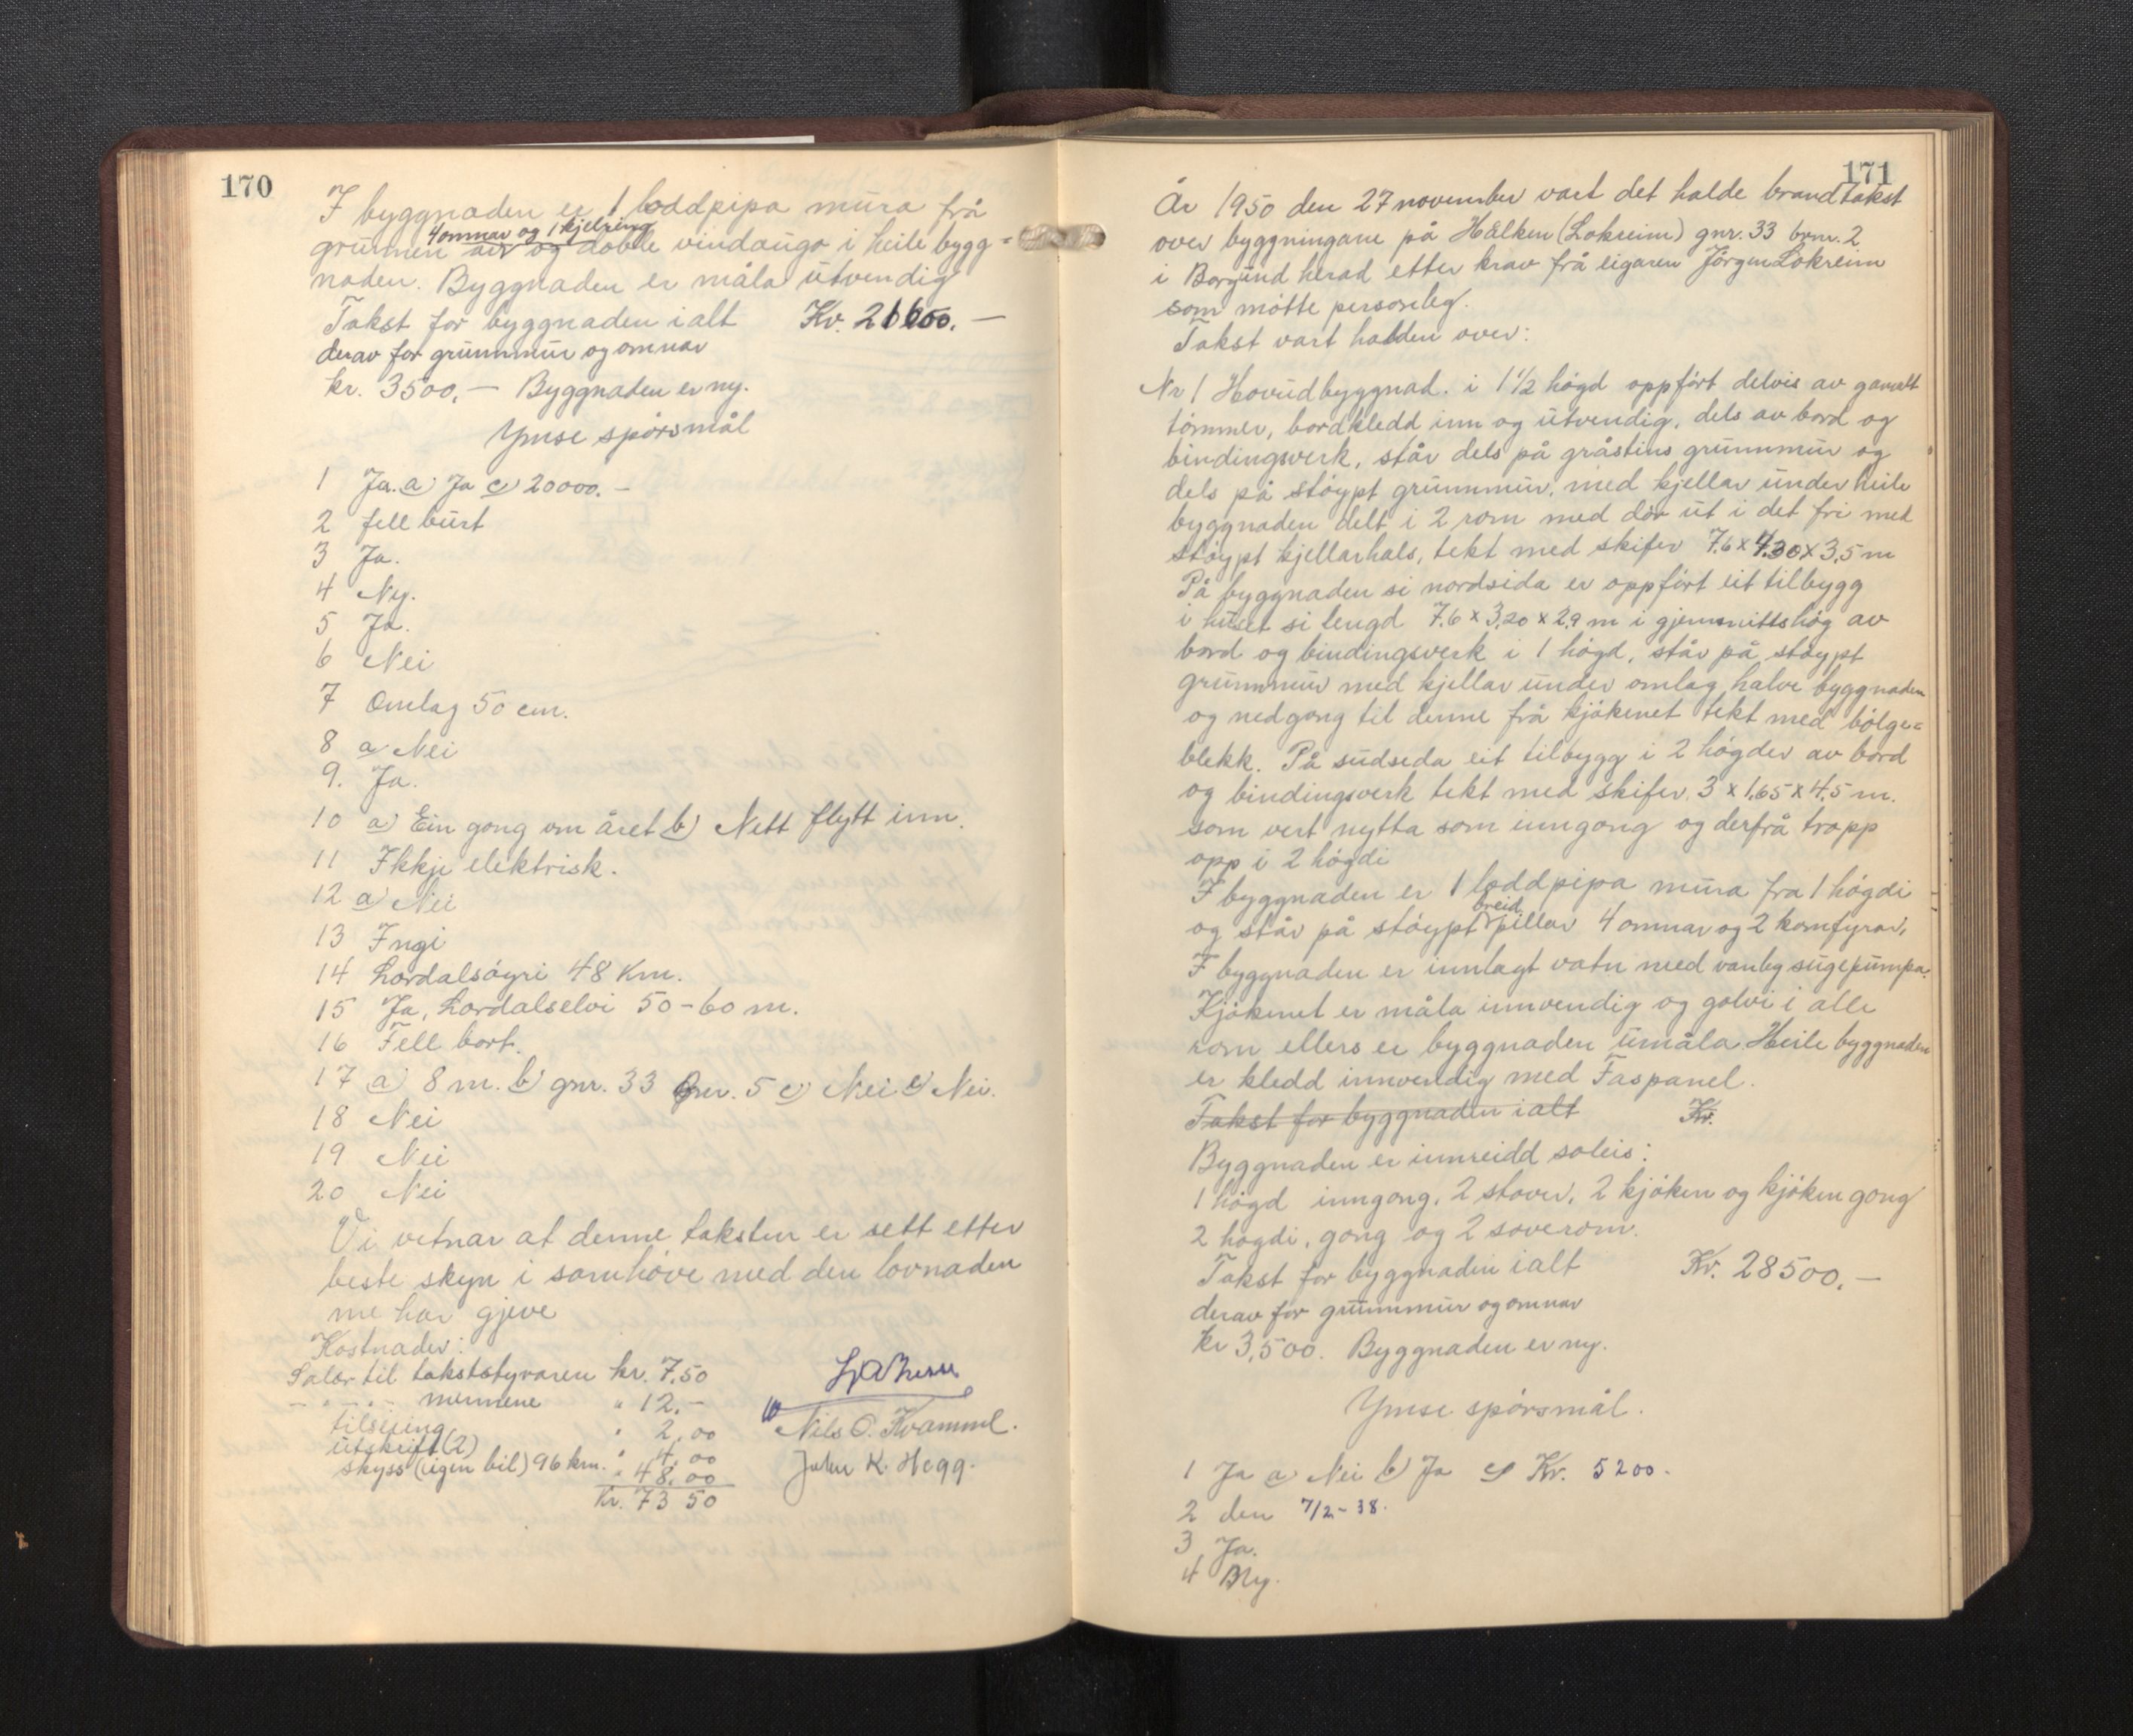 170
I byggnaden er 1 loddpipa mura frå
4 omnar og 1 kjelring
grunnen av og doble vindaugo i heile bygg=
naden. Byggnaden er måla utvendig
Takst for byggnaden ialt Kr. 21600.—
derav for grunnmur og omnar
kr. 3500,— Byggnaden er ny.
Ymse spörsmål
1 Ja. a) Ja c) 20000.-
2 fell burt
3 Ja.
4 Ny.
5 Ja.
6 Nei
7 Omlag 50 cm.
8 a Nei
9. Ja.
10 a) Ein gong om året b) Nett flytt inn.
11 Ikkje elektrisk.
12 a) Nei
13 Ingi
14 Lærdalsöyri 48 Km.
15 Ja, Lærdalselvi 50-60 m.
16 Fell bort.
17 a) 8 m. b) gnr. 33 bnr. 5 c) Nei e) Nei.
18 Nei
19 Nei
20 Nei
Vi vitnar at denne taksten er sett etter
beste skyn i samhöve med den lovnaden
me har gjeve
Kostnader:
Salær til takststyraren kr. 7.50
- " - " - mennene " 12.-
tilsejing " 2.00
utskrift (2) " 4.00
skyss (eigen bil) 96 km. " 48.00
Kr. 73 50
Nils O. Kvamme.
John K. Hegg.
171
År 1950 den 27 november vart det halde brandtakst
over byggningane på Hælken (Lokreim) gnr. 33 brnr. 2
i Borgund herad etter krav frå eigaren Jörgen Lokreim
som mötte personleg.
Takst vart halden over:
Nr 1 Hovudbyggnad. i 1½ högd oppfört delvis av gamalt
tömmer, bordkledd inn og utvendig, dels av bord og
bindingsverk, står dels på gråstins grunnmur og
dels på stöypt grunnmur, med kjellar under heile
byggnaden delt i 2 rom med dör ut i det fri med
stöypt kjellarhals, tekt med skifer 7,6 x 4,30 x 3,5 m
På byggnaden si nordsida er oppfört eit tilbygg
i huset si lengd 7,6 x 3,20 x 2,9 m i gjennmittshög av
bord og bindingsverk i 1 högd, står på stöypt
grunnmur med kjellar under omlag halve byggnaden
og nedgong til denne frå kjökenet tekt med bölge=
blekk. På sudsida eit tilbygg i 2 högder av bord
og bindingsverk tekt med skifer, 3 x 1,65 x 4,5 m.
som vert nytta som inngong og derfrå tropp
opp i 2 högdi
I byggnaden er 1 loddpipa mura fra 1 högdi
breid
og står på stöypt pillar 4 omnar og 2 komfyrar,
I byggnaden er innlagt vatn med vanleg sugepumpa.
Kjökenet er måla innvendig og golvi i alle
rom ellers er byggnaden umåla. Heile byggnaden
er kledd innvendig med Faspanel.
Takst for byggnaden ialt Kr.
Byggnaden er innreidd soleis:
1 högd inngong, 2 stover, 2 kjöken og kjökengong
2 högdi, gong og 2 soverom.
Takst for byggnaden ialt Kr. 28500.—
derav for grunnmur og omnar
kr 3,500. Byggnaden er ny.
Ymse spörsmål.
1 Ja a) Nei b) Ja c) Kr. 5200.
2 den 7/2-38.
3 Ja.
4 Bly.